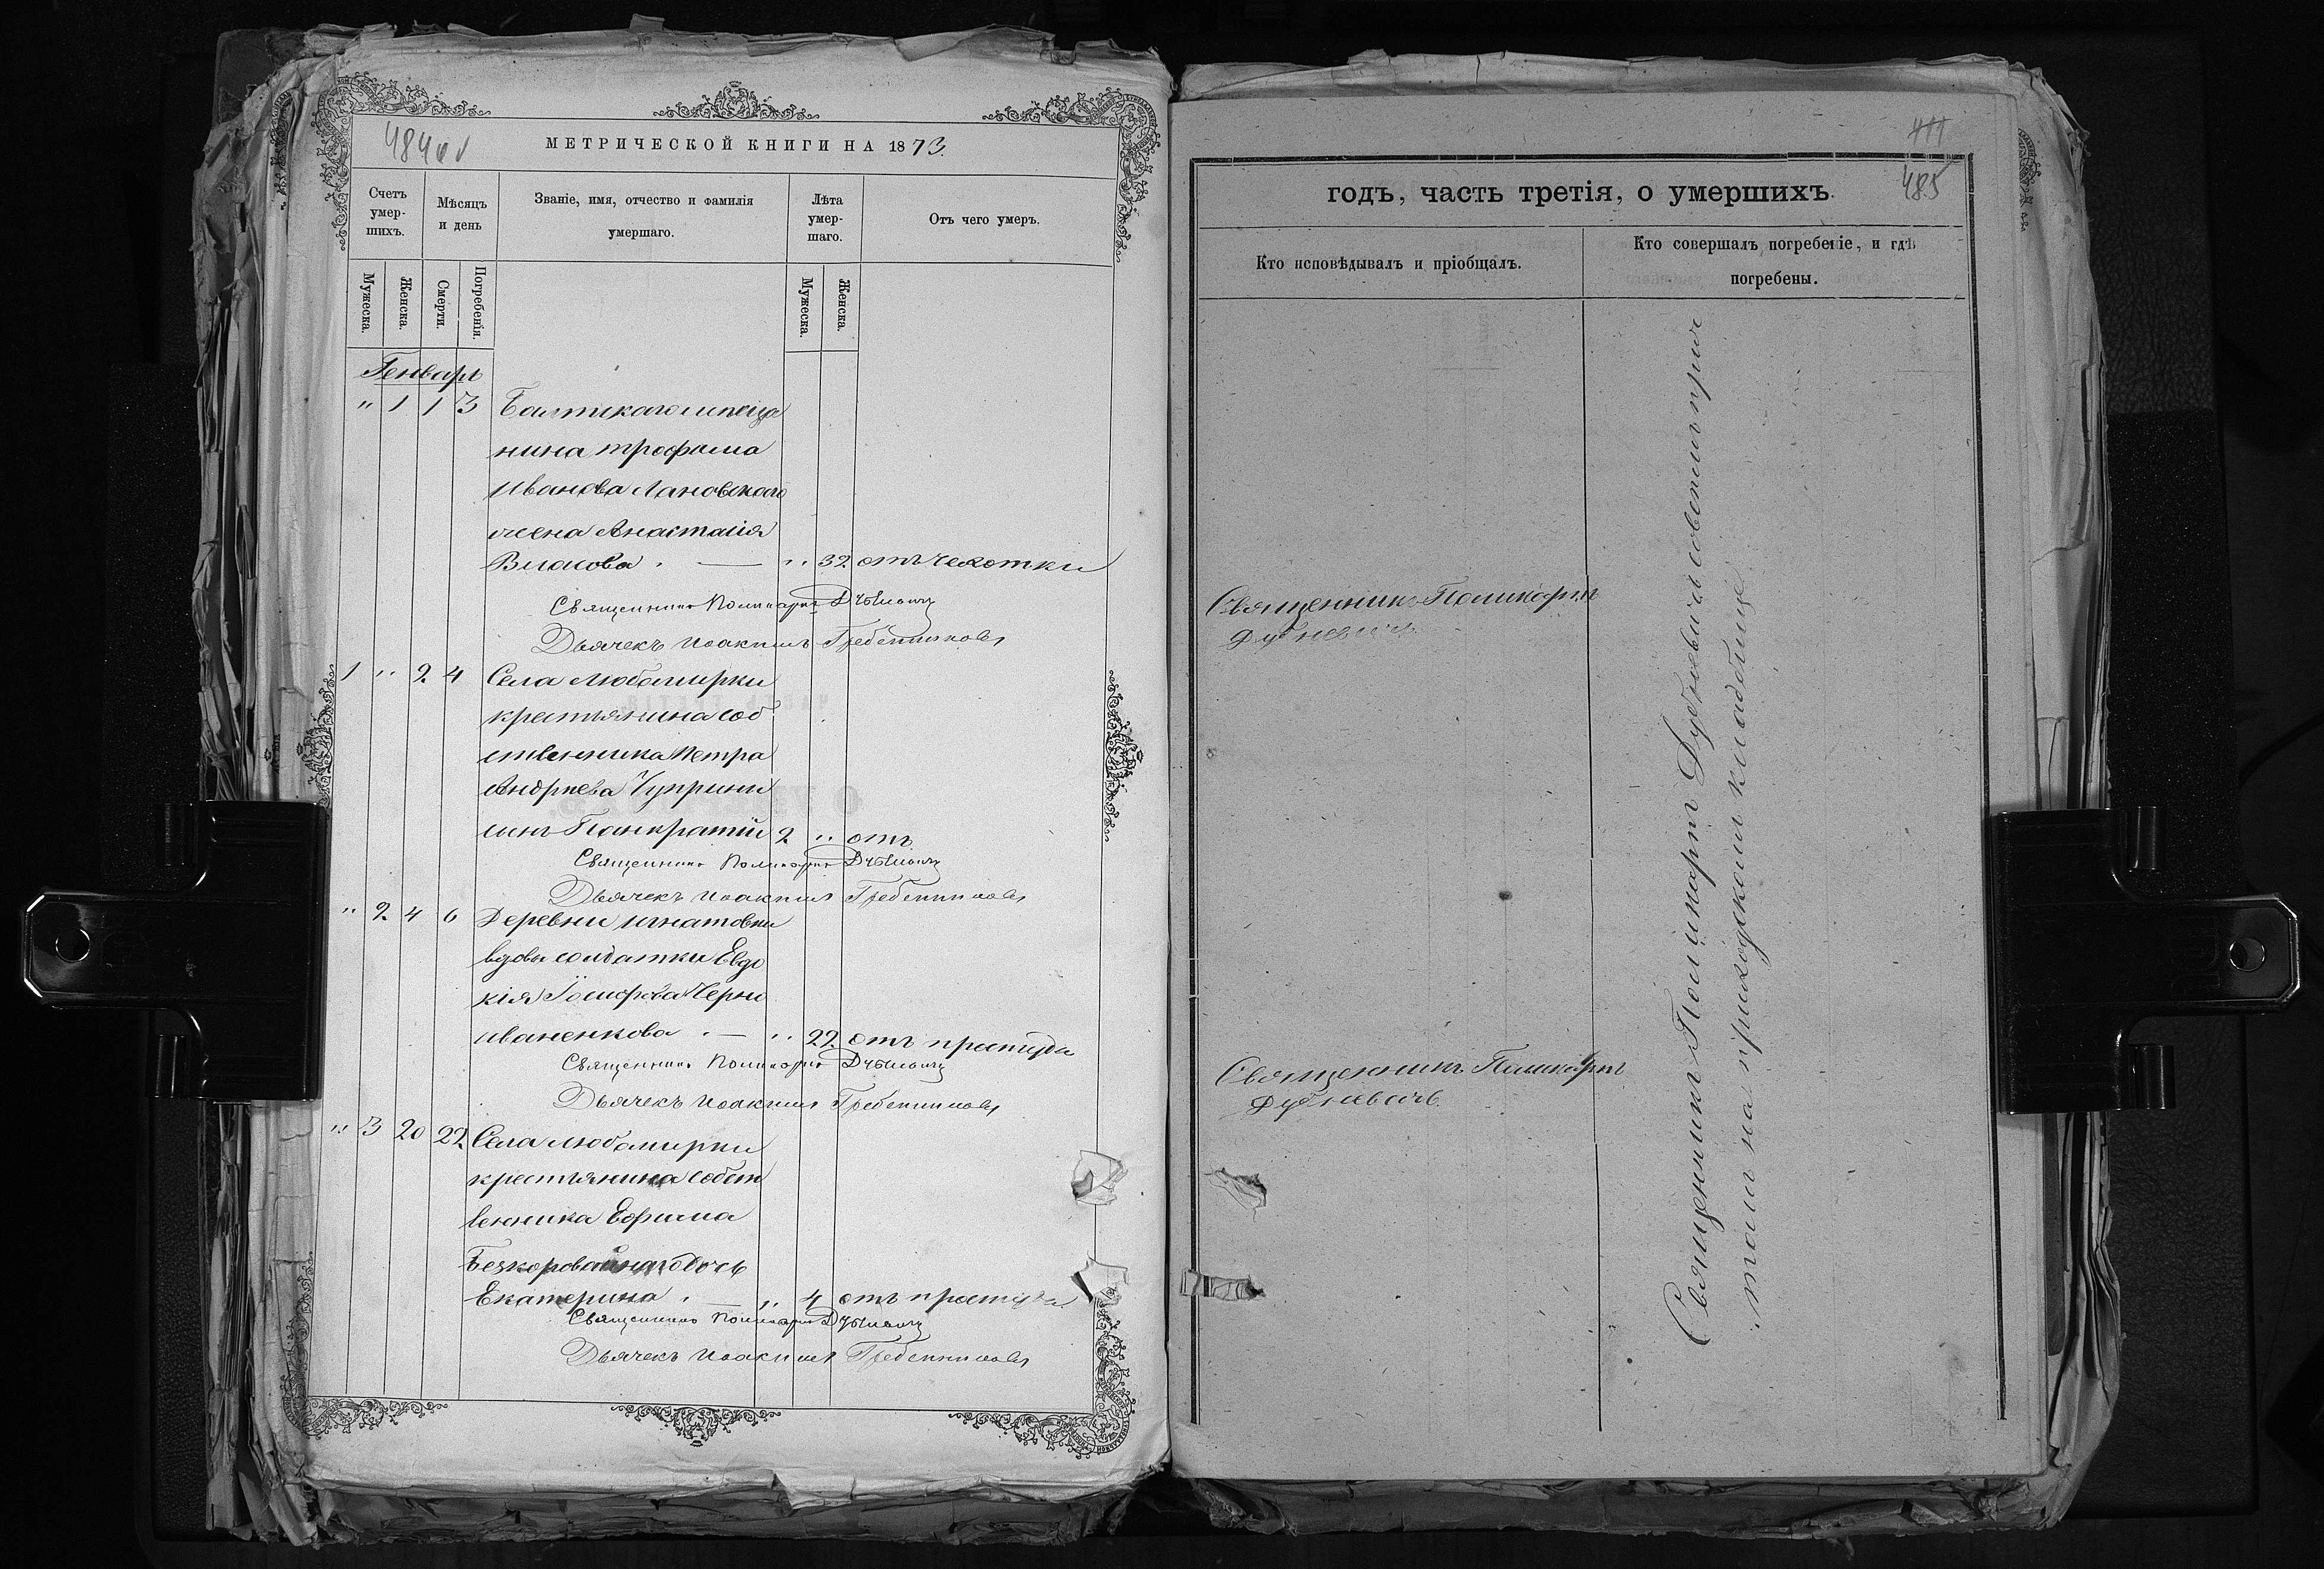 484об
МЕТРИЧЕСКОЙ КНИГИ НА 1873.
Счетъ умер-шихъ.
Мѣсяцъ и день
Званіе, имя, отчество и фамилія умершаго.
Лѣта умер-шаго.
Отъ чего умеръ.
Мужеска.
Женска.
Смерти.
Погребенія.
Мужеска.
Женска.
Генварь
" 1 1 3 Балтскаго меща
нина Трофима
Иванова Лановскаго
жена Анастасія
Власова " 32 отъ чехотки
Священникъ Поликарпъ Дубневичъ
Дьячекъ Иоакимъ Гребенниковъ
1 " 2 4 Села Любомирки
крестьянина соб
ственника Петра
Андриева Чуприни
сынъ Панкратій 2 " отъ
Священникъ Поликарпъ Дубневичъ
Дьячекъ Иоакимъ Гребенниковъ
" 2 4 6 Деревни Игнатовки
вдова солдатки Евдо
кія Іосифова Черно
иваненкова " 22 отъ простуда
Священникъ Поликарпъ Дубневичъ
Дьячекъ Иоакимъ Гребенниковъ
" 3 20 22 Села Любомирки
крестьянина собст
венника Ефима
Безкоровайнаго дочь
Екатерина " 4 отъ простуда
Священникъ Поликарпъ Дубневичъ
Дьячекъ Иоакимъ Гребенниковъ
485
годъ, часть третія, о умершихъ.
Кто исповѣдывалъ и пріобщалъ.
Кто совершалъ погребеніе, и гдѣ погребены.
Священникъ Поликарпъ
Дубневичъ
Священникъ Поликарпъ
Дубневичъ
Священникъ Поликарпъ Дубневичъ совопитъ прич
томъ на приходскомъ кладбищѣ